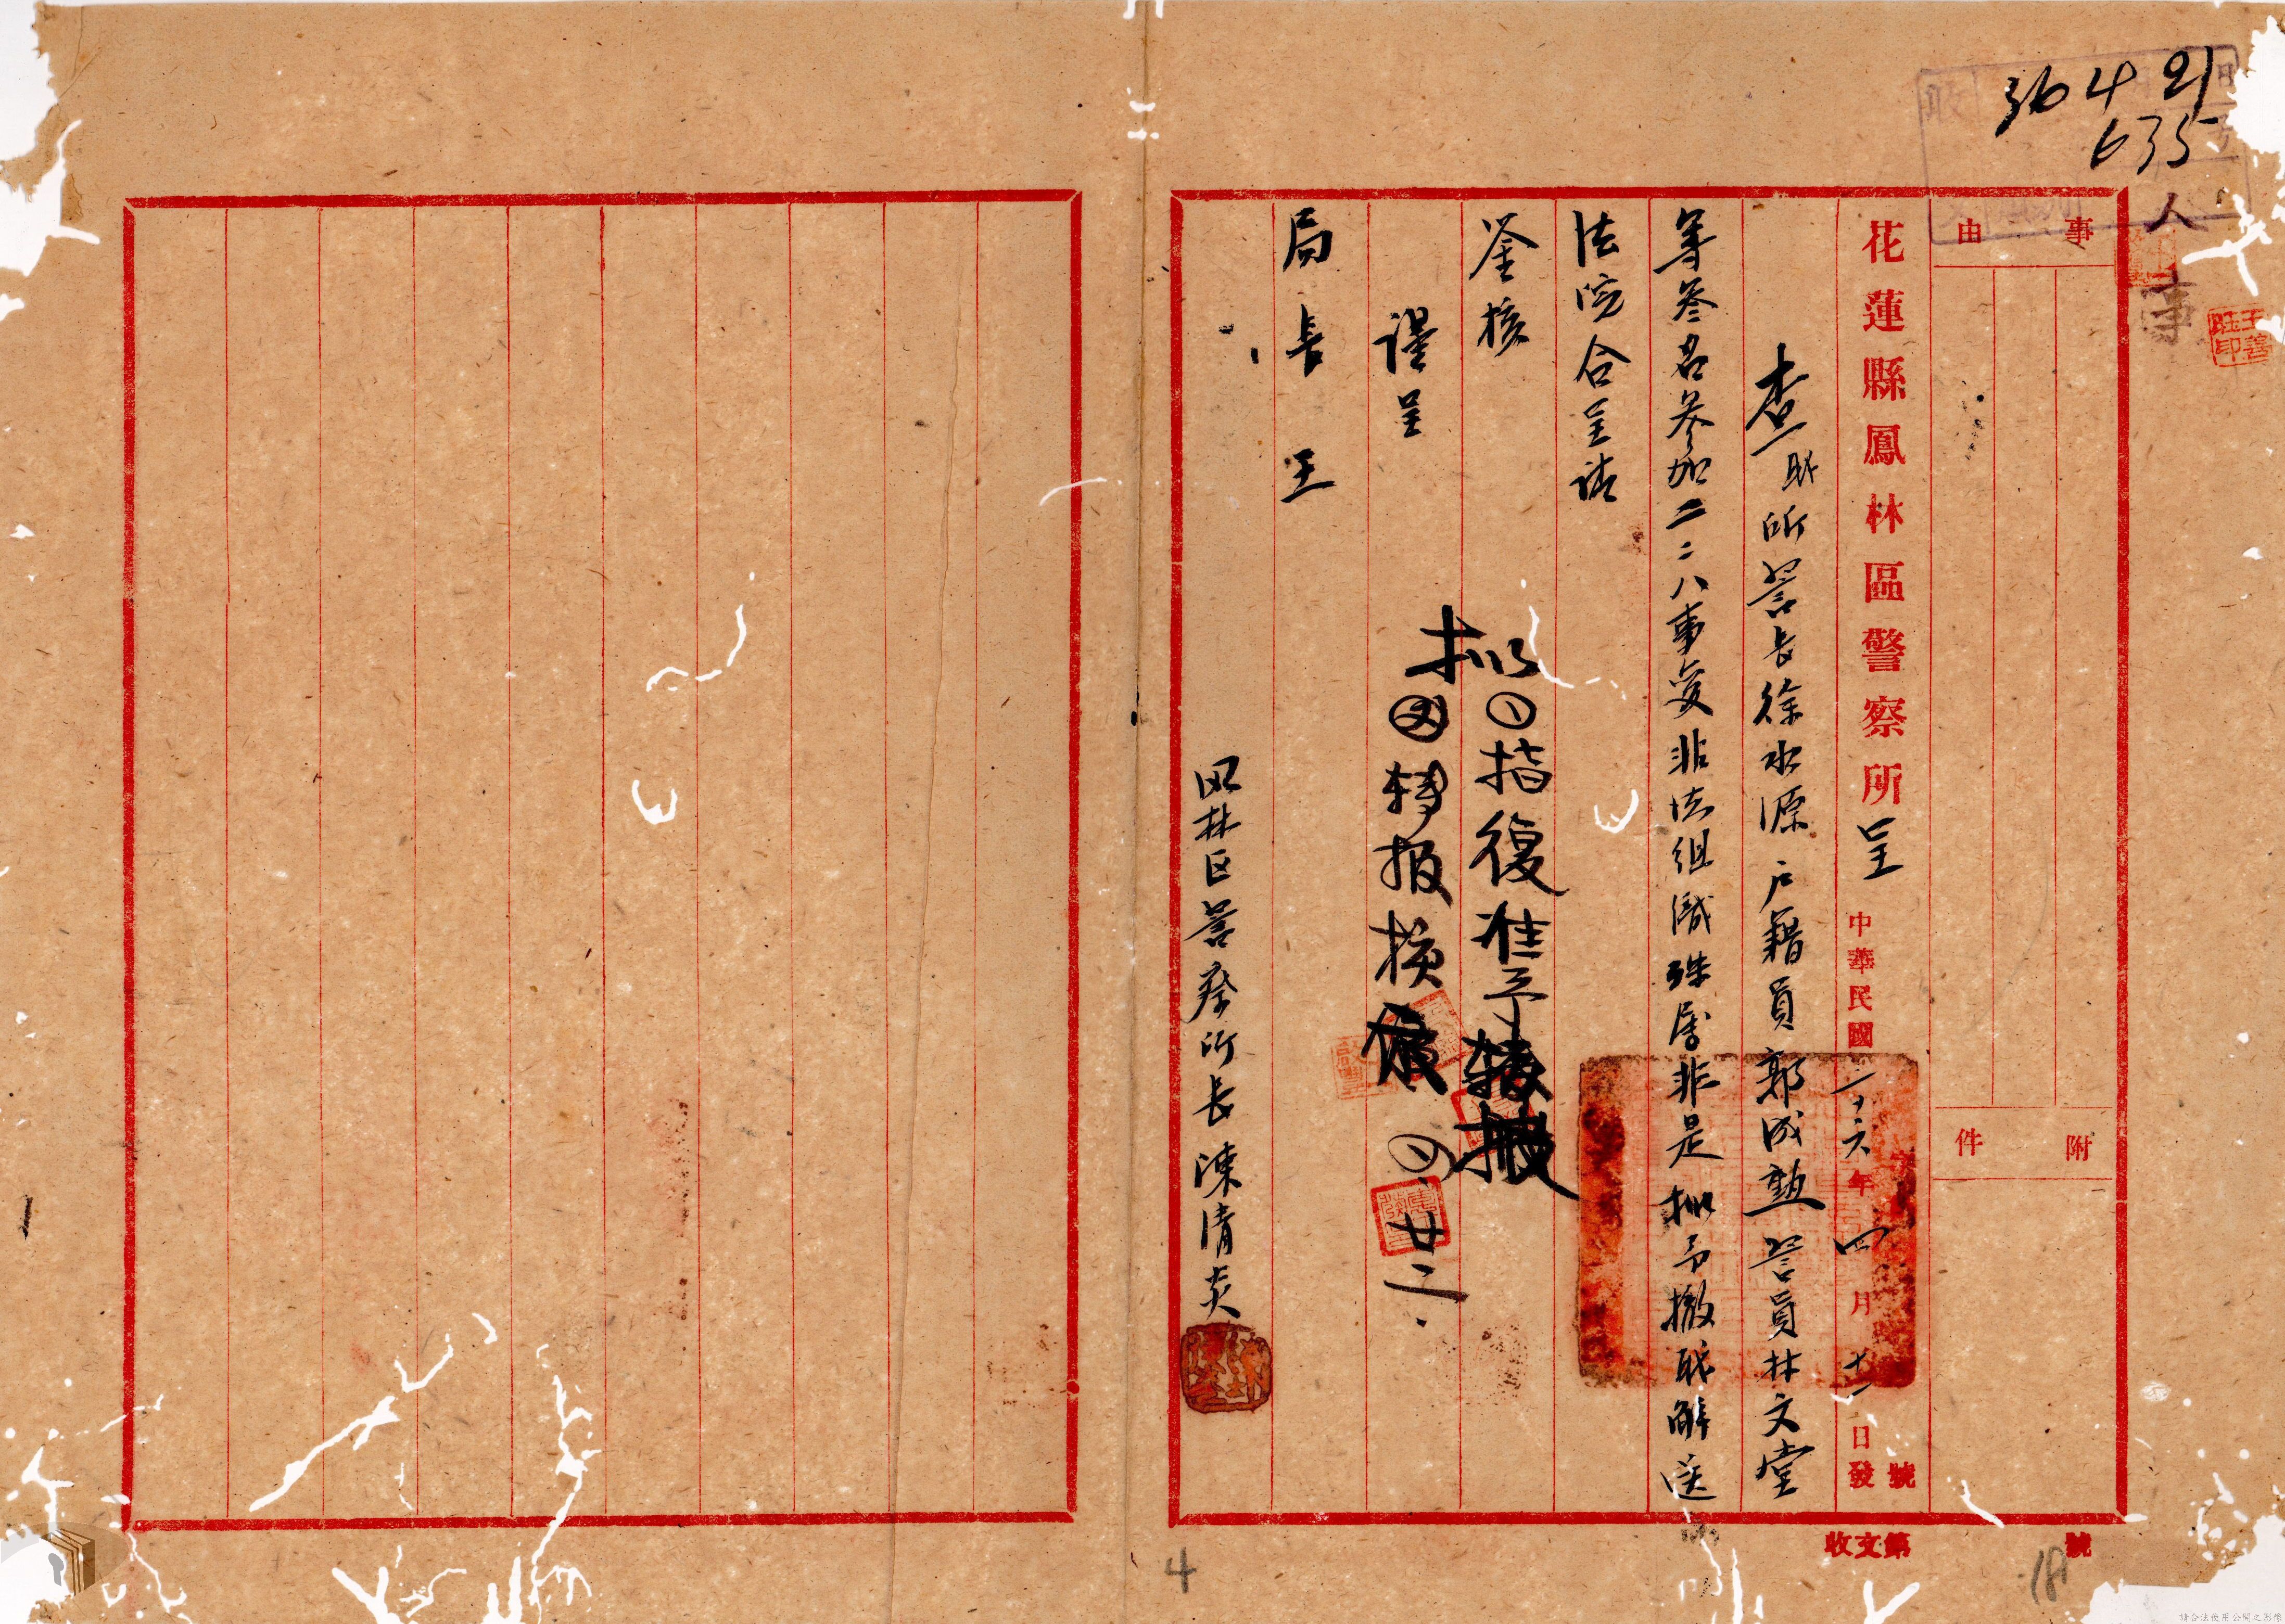 36 4 21
635
人事
王善
事由
附件
花蓮縣鳳林區警察所呈 中華民國三十六年四月十一日發
字 號
查職所警長徐水源戶籍員郭成勲警員林文堂
等叁名參加二二八事變非法組織殊屬非是擬予撤職解送
法院合呈請
鉴核
謹呈
局長王
凤林区警察所長陳清炎
擬
①指復准予
②轉报核
廿二
收文第 號
4
18
請合法使用公開之影像